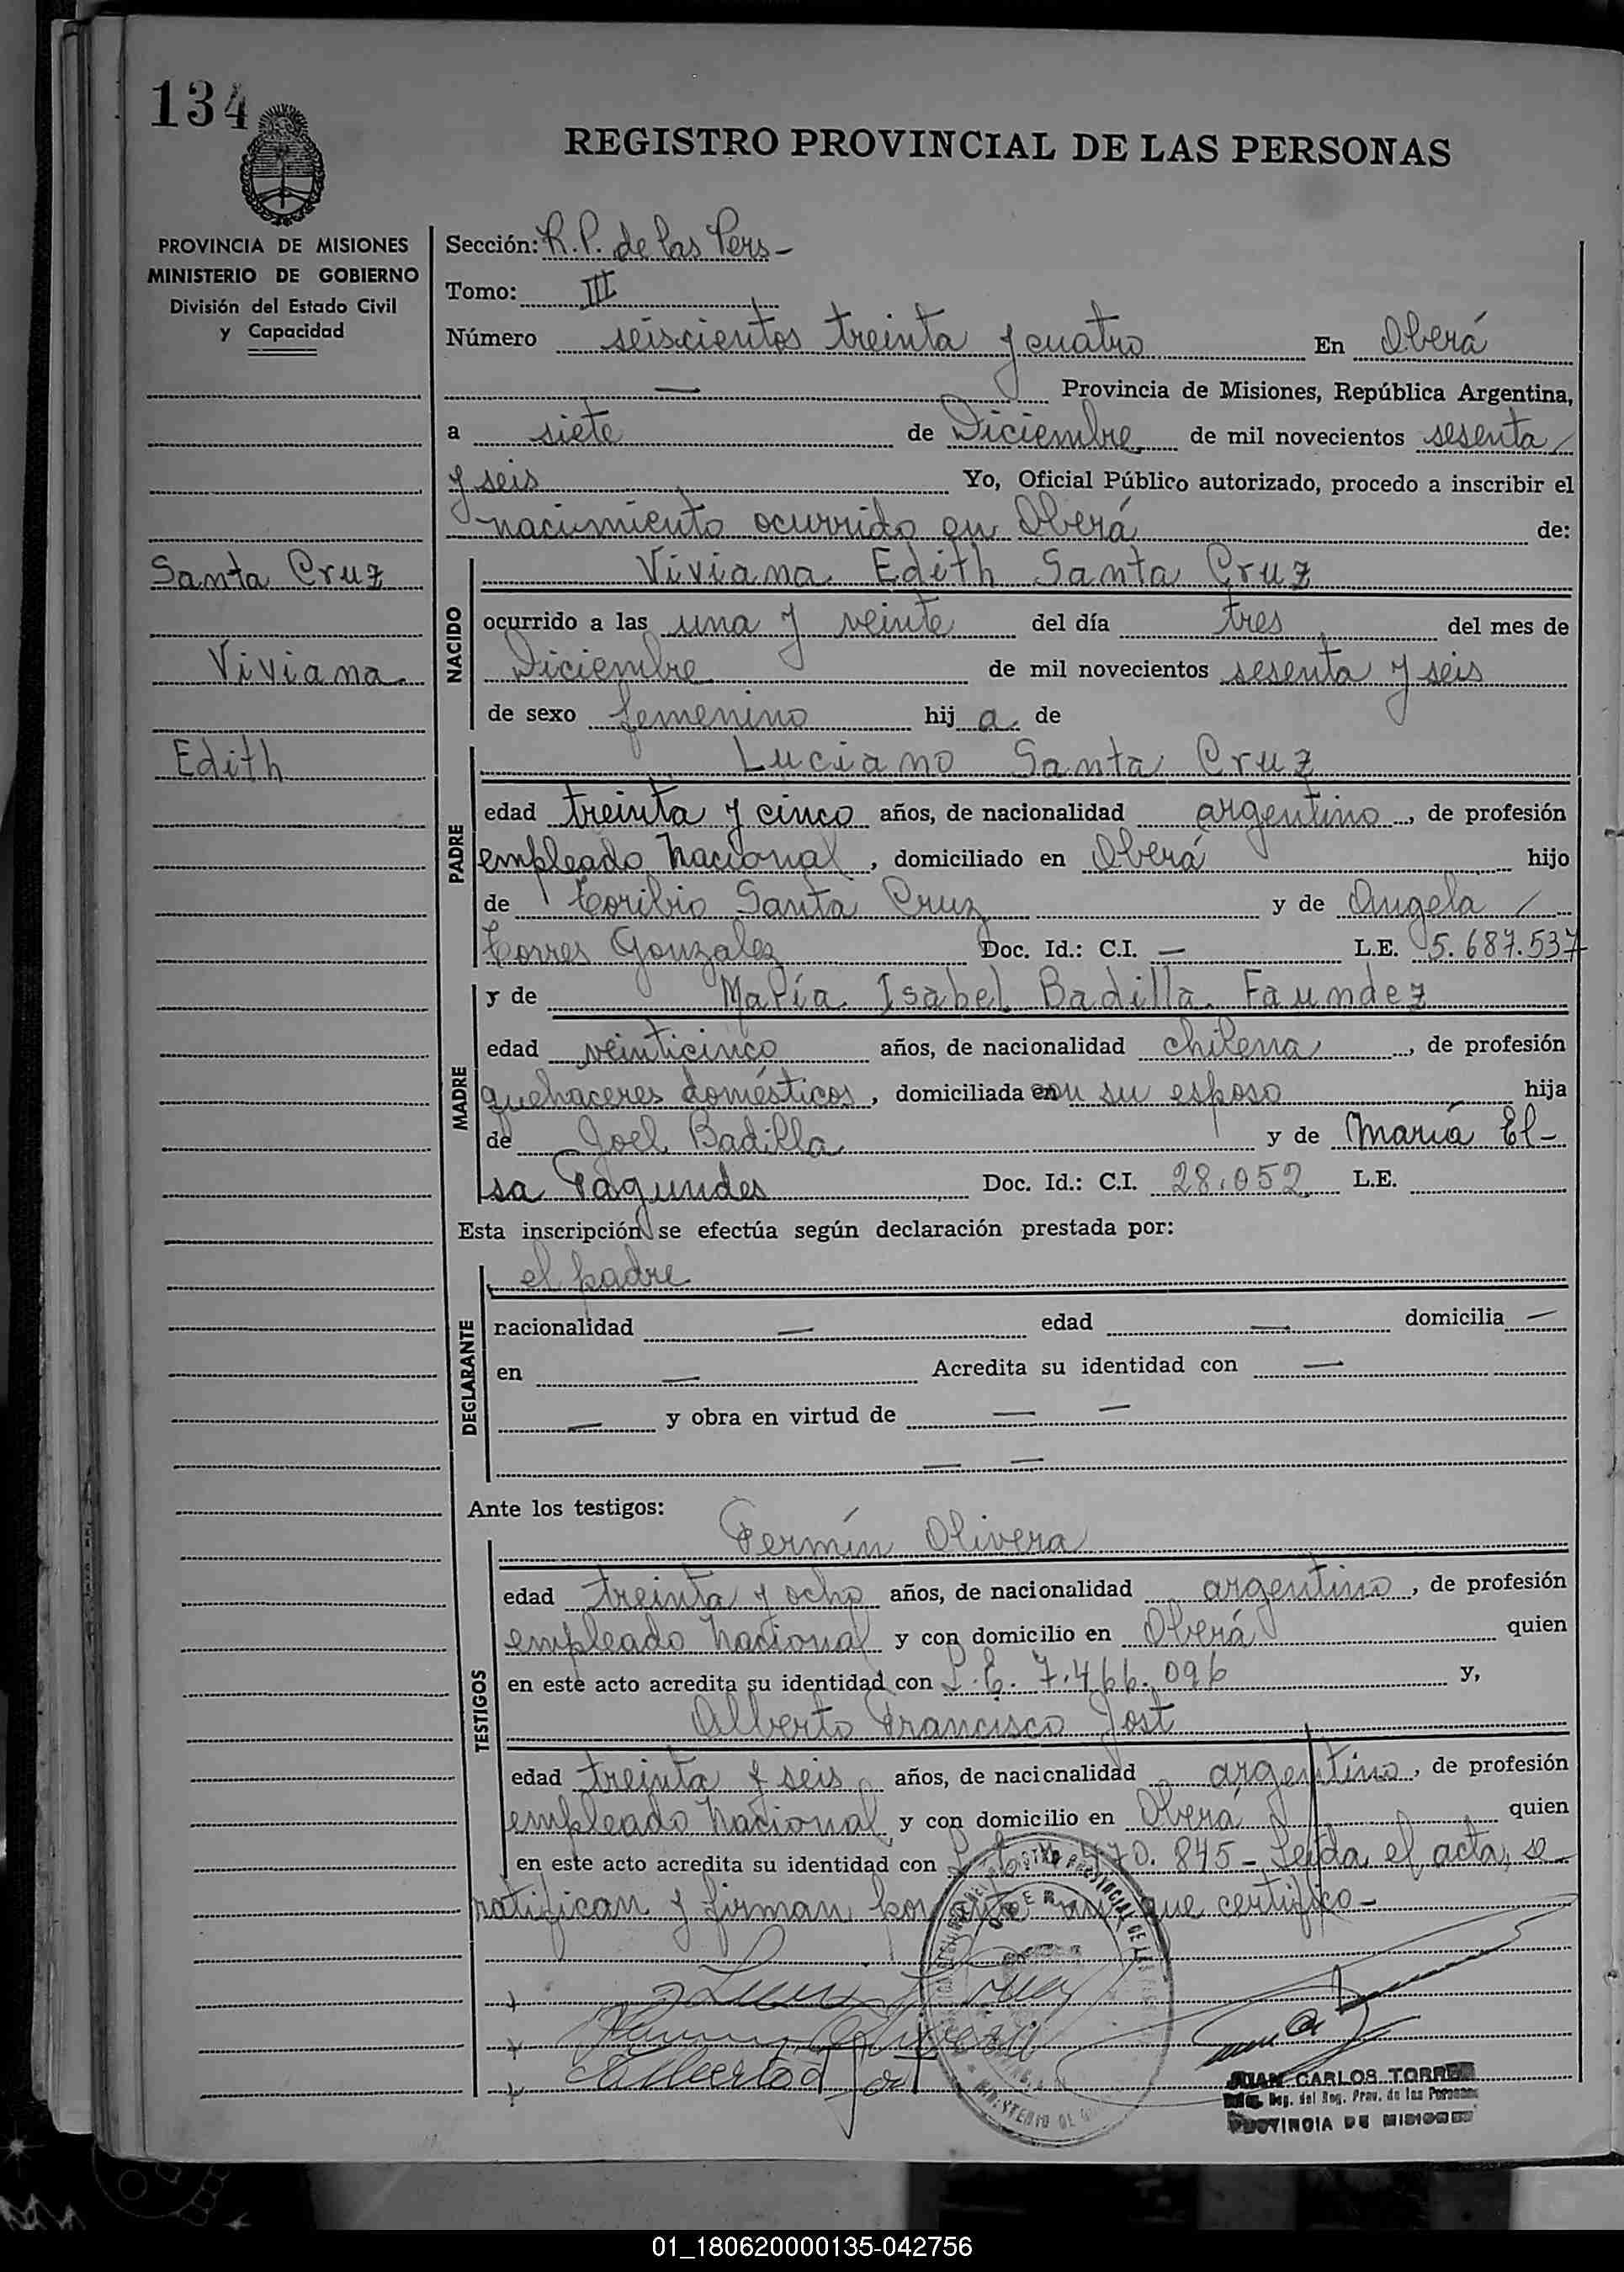 134
REGISTRO PROVINCIAL DE LAS PERSONAS
PROVINCIA DE MISIONES
MINISTERIO DE GOBIERNO
División del Estado Civil
y Capacidad
Santa Cruz
Viviana
Edith
Sección: R. P. de las Pers -
Tomo: III
Número seiscientos treinta y cuatro En Oberá
— Provincia de Misiones, República Argentina,
a siete de Diciembre de mil novecientos sesenta /
y seis Yo, Oficial Público autorizado, procedo a inscribir el
nacimiento ocurrido en Oberá de:
NACIDO
Viviana Edith Santa Cruz
ocurrido a las una y veinte del día tres del mes de
Diciembre de mil novecientos sesenta y seis
de sexo femenino hij a de
PADRE
Luciano Santa Cruz
edad treinta y cinco años, de nacionalidad argentino, de profesión
empleado Nacional, domiciliado en Oberá hijo
de Toribio Santa Cruz y de Angela /
Torres Gonzalez Doc. Id.: C.I. — L.E. 5.687.537
MADRE
y de María Isabel Badilla Faundez
edad veinticinco años, de nacionalidad chilena, de profesión
quehaceres domésticos, domiciliada con su esposo hija
de Joel Badilla y de María El-
sa Fagundes Doc. Id.: C.I. 28.052 L.E.
Esta inscripción se efectúa según declaración prestada por:
DECLARANTE
el padre
nacionalidad — edad — domicilia —
en — Acredita su identidad con —
— y obra en virtud de — —
— —
Ante los testigos:
TESTIGOS
Fermín Olivera
edad treinta y ocho años, de nacionalidad argentino, de profesión
empleado Nacional y con domicilio en Oberá quien
en este acto acredita su identidad con L.E. 7.466.096 y,
Alberto Francisco Jost
edad treinta y seis años, de nacionalidad argentino, de profesión
empleado Nacional y con domicilio en Oberá quien
en este acto acredita su identidad con 470.845 - Leida el acta, se
ratifican y firman por ante mí que certifico -
JUAN CARLOS TORRES
Deg. del Reg. Prov. de las Personas
PROVINCIA DE MISIONES
01_180620000135-042756